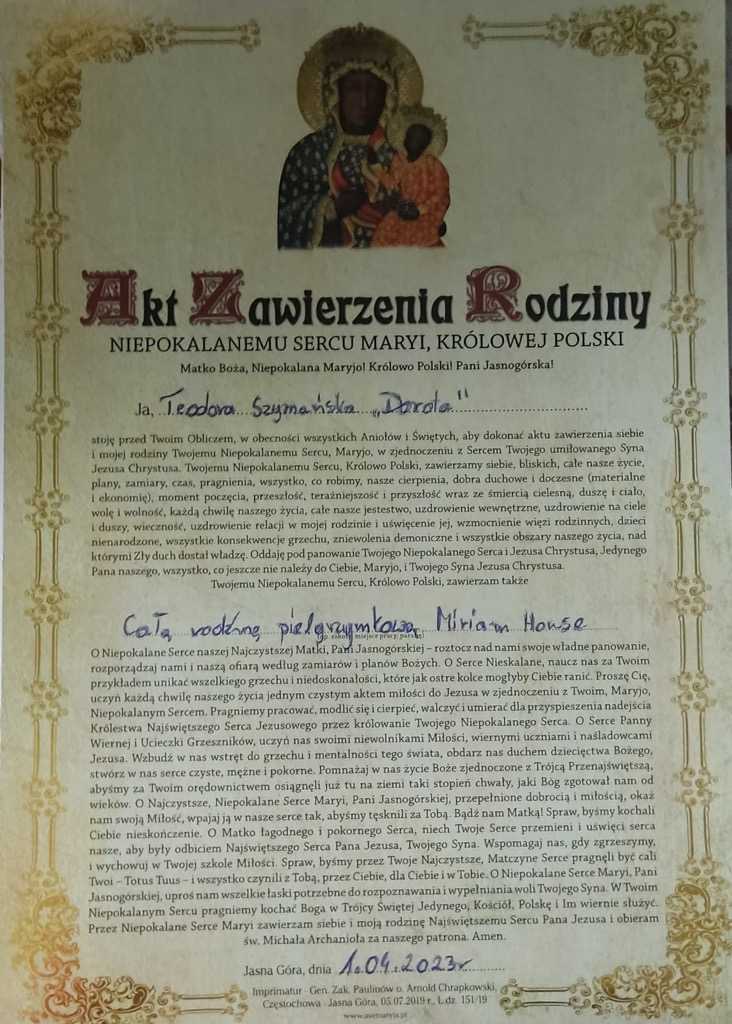 Akt Zawierzenia Rodziny
NIEPOKALANEMU SERCU MARYI, KRÓLOWEJ POLSKI
Matko Boża, Niepokalana Maryjo! Królowo Polski! Pani Jasnogórska!
Ja, Teodora Szymańska „Dorota"
stoję przed Twoim Obliczem, w obecności wszystkich Aniołów i Świętych, aby dokonać aktu zawierzenia siebie
i mojej rodziny Twojemu Niepokalanemu Sercu, Maryjo, w zjednoczeniu z Sercem Twojego umiłowanego Syna
Jezusa Chrystusa. Twojemu Niepokalanemu Sercu, Królowo Polski, zawierzamy siebie, bliskich, całe nasze życie,
plany, zamiary, czas, pragnienia, wszystko, co robimy, nasze cierpienia, dobra duchowe i doczesne (materialne
i ekonomię), moment poczęcia, przeszłość, teraźniejszość i przyszłość wraz ze śmiercią cielesną, duszę i ciało,
wolę i wolność, każdą chwilę naszego życia, całe nasze jestestwo, uzdrowienie wewnętrzne, uzdrowienie na ciele
i duszy, wieczność, uzdrowienie relacji w mojej rodzinie i uświęcenie jej, wzmocnienie więzi rodzinnych, dzieci
nienarodzone, wszystkie konsekwencje grzechu, zniewolenia demoniczne i wszystkie obszary naszego życia, nad
którymi Zły duch dostał władzę. Oddaję pod panowanie Twojego Niepokalanego Serca i Jezusa Chrystusa, Jedynego
Pana naszego, wszystko, co jeszcze nie należy do Ciebie, Maryjo, i Twojego Syna Jezusa Chrystusa.
Twojemu Niepokalanemu Sercu, Królowo Polski, zawierzam także
Całą rodzinę pielgrzymkową Miriam House
(np. szkołę, miejsce pracy, parafię)
O Niepokalane Serce naszej Najczystszej Matki, Pani Jasnogórskiej – roztocz nad nami swoje władne panowanie,
rozporządzaj nami i naszą ofiarą według zamiarów i planów Bożych. O Serce Nieskalane, naucz nas za Twoim
przykładem unikać wszelkiego grzechu i niedoskonałości, które jak ostre kolce mogłyby Ciebie ranić. Proszę Cię,
uczyń każdą chwilę naszego życia jednym czystym aktem miłości do Jezusa w zjednoczeniu z Twoim, Maryjo,
Niepokalanym Sercem. Pragniemy pracować, modlić się i cierpieć, walczyć i umierać dla przyspieszenia nadejścia
Królestwa Najświętszego Serca Jezusowego przez królowanie Twojego Niepokalanego Serca. O Serce Panny
Wiernej i Ucieczki Grzeszników, uczyń nas swoimi niewolnikami Miłości, wiernymi uczniami i naśladowcami
Jezusa. Wzbudź w nas wstręt do grzechu i mentalności tego świata, obdarz nas duchem dziecięctwa Bożego,
stwórz w nas serce czyste, mężne i pokorne. Pomnażaj w nas życie Boże zjednoczone z Trójcą Przenajświętszą,
abyśmy za Twoim orędownictwem osiągnęli już tu na ziemi taki stopień chwały, jaki Bóg zgotował nam od
wieków. O Najczystsze, Niepokalane Serce Maryi, Pani Jasnogórskiej, przepełnione dobrocią i miłością, okaż
nam swoją Miłość, wpajaj ją w nasze serce tak, abyśmy tęsknili za Tobą. Bądź nam Matką! Spraw, byśmy kochali
Ciebie nieskończenie. O Matko łagodnego i pokornego Serca, niech Twoje Serce przemieni i uświęci serca
nasze, aby były odbiciem Najświętszego Serca Pana Jezusa, Twojego Syna. Wspomagaj nas, gdy zgrzeszymy,
i wychowuj w Twojej szkole Miłości. Spraw, byśmy przez Twoje Najczystsze, Matczyne Serce pragnęli być cali
Twoi – Totus Tuus – i wszystko czynili z Tobą, przez Ciebie, dla Ciebie i w Tobie. O Niepokalane Serce Maryi, Pani
Jasnogórskiej, uproś nam wszelkie łaski potrzebne do rozpoznawania i wypełniania woli Twojego Syna. W Twoim
Niepokalanym Sercu pragniemy kochać Boga w Trójcy Świętej Jedynego, Kościół, Polskę i Im wiernie służyć.
Przez Niepokalane Serce Maryi zawierzam siebie i moją rodzinę Najświętszemu Sercu Pana Jezusa i obieram
św. Michała Archanioła za naszego patrona. Amen.
Jasna Góra, dnia 1.04.2023r
Imprimatur - Gen. Zak. Paulinów o. Arnold Chrapkowski,
Częstochowa - Jasna Góra, 05.07.2019 r., L.dz. 151/19
www.avemaryja.pl